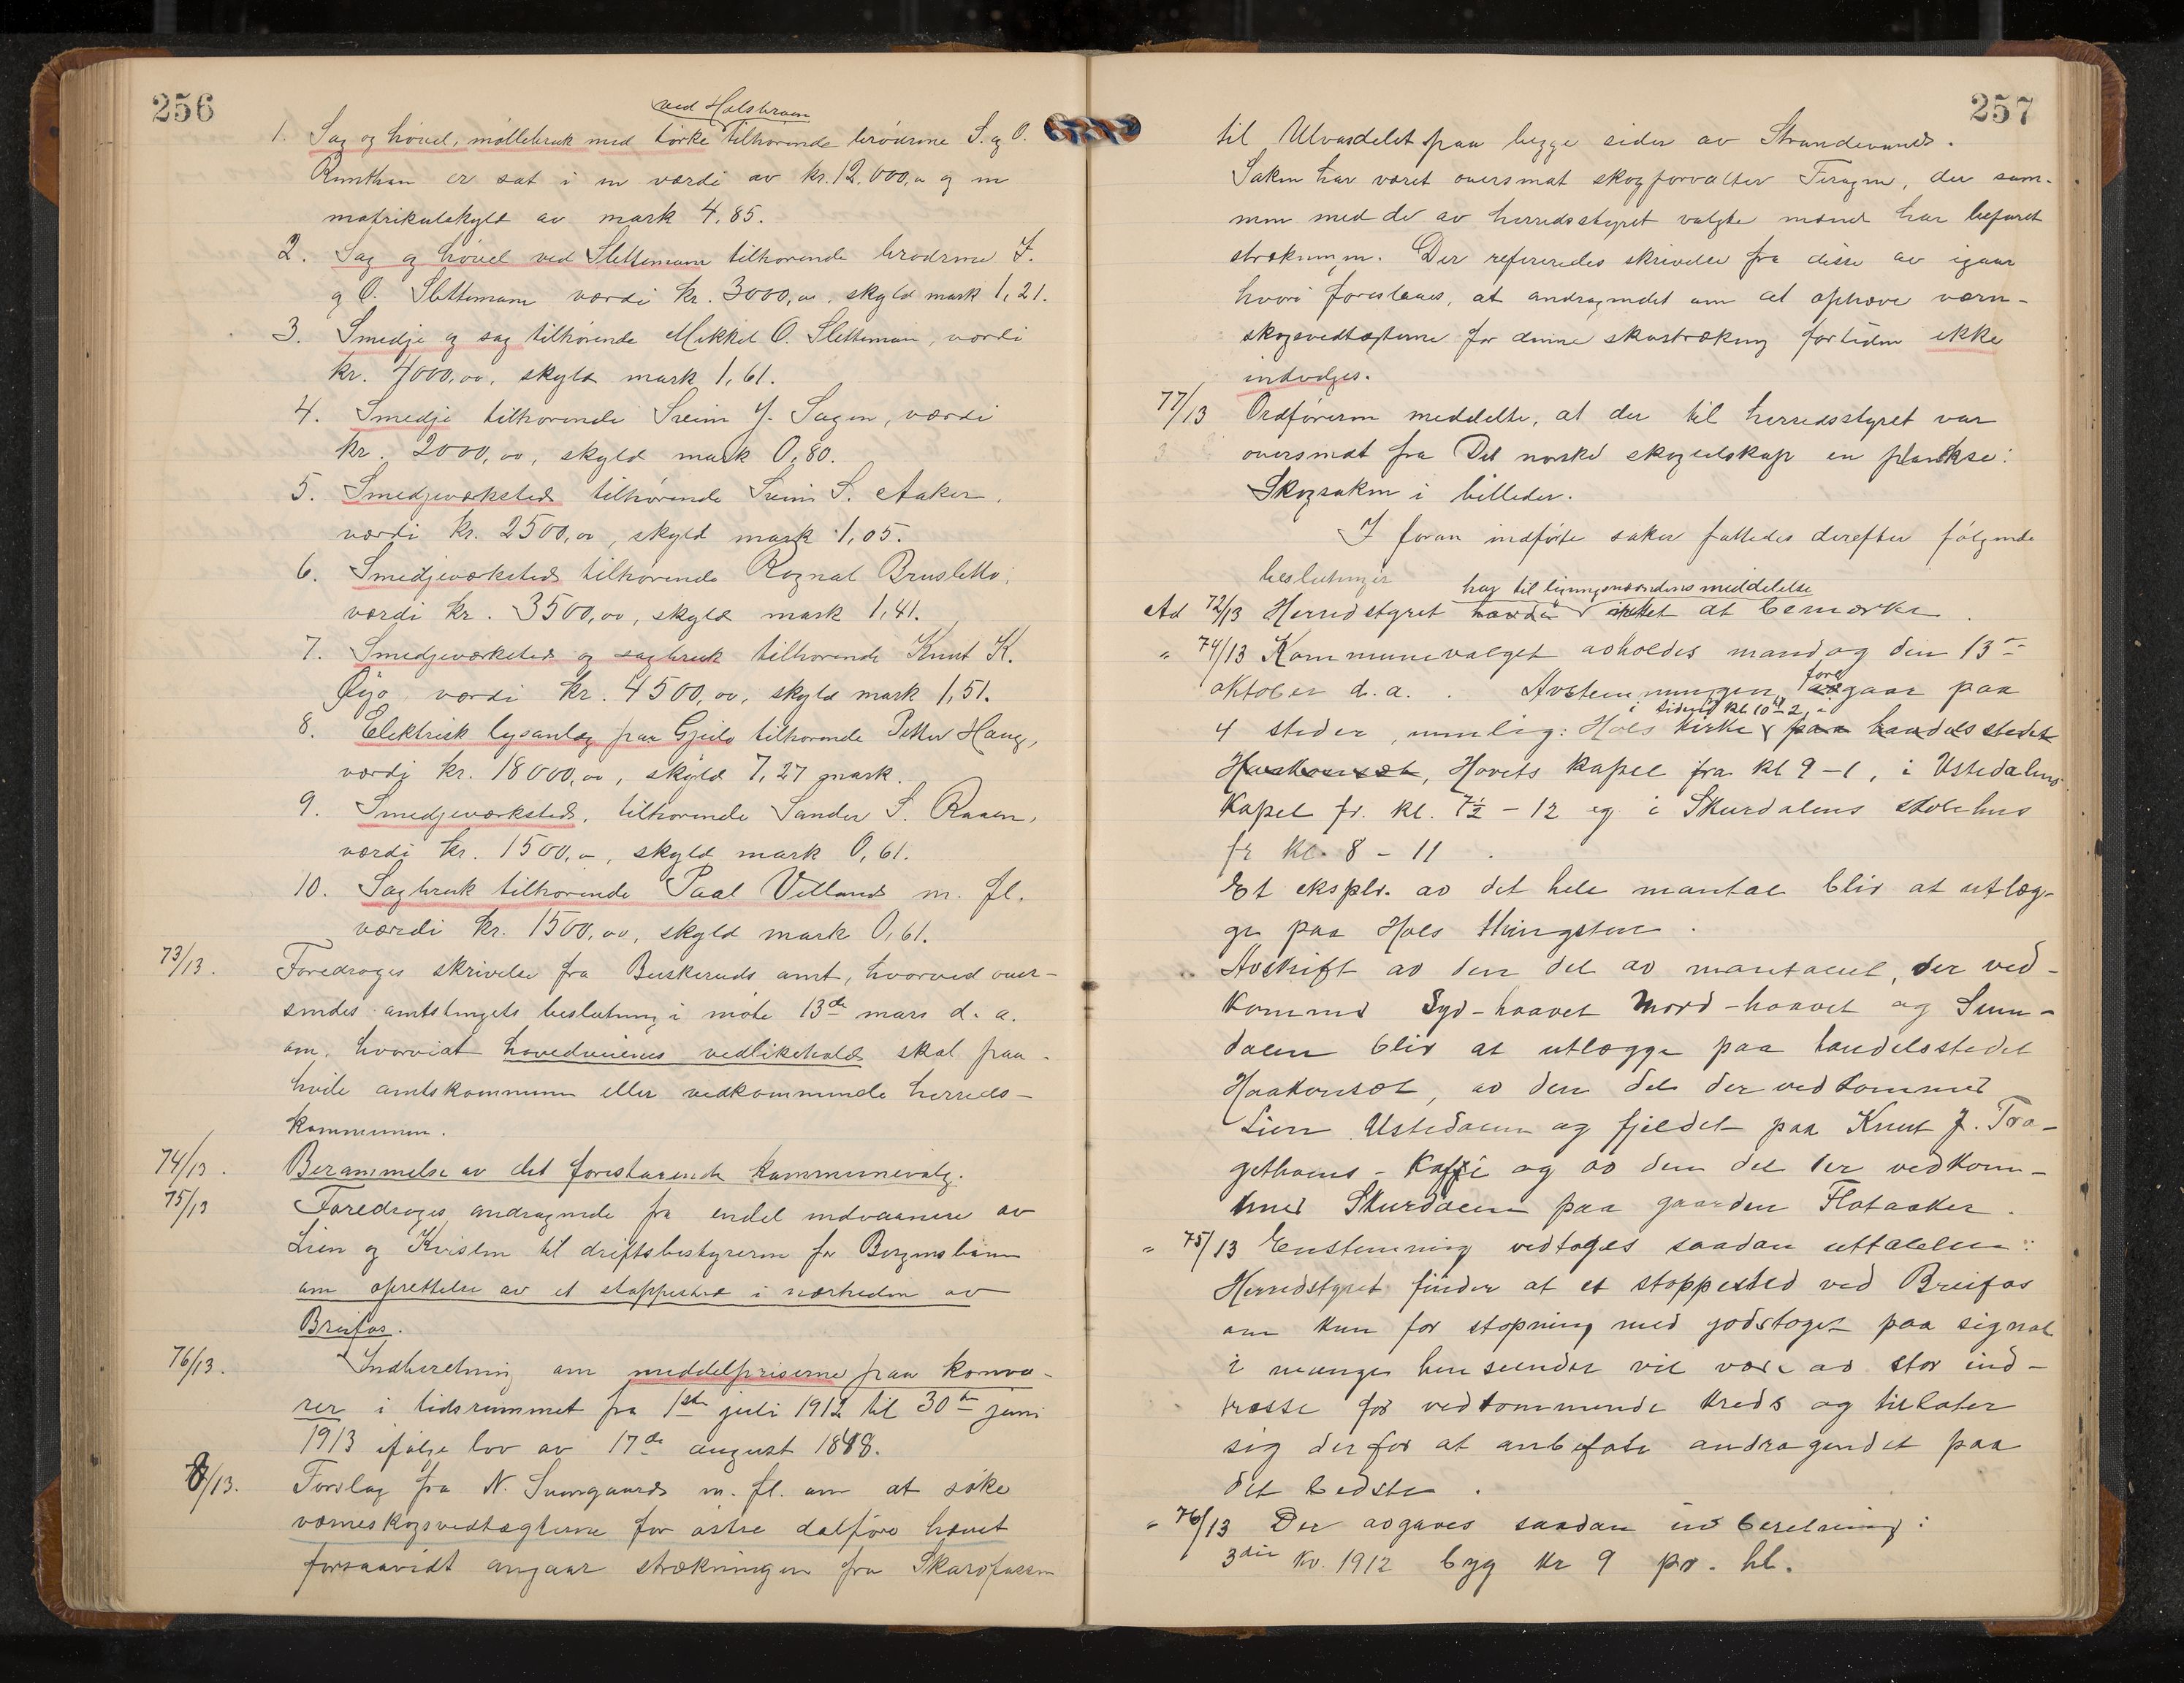 256
ved Holsbroen
1. Sag og høvel, møllebruk med tørke tilhørende brødrene S. og O.
er sat i en værdi av kr. 12,000,00 og en
matrikulskyld av mark 4,85.
2. Sag og høvel ved Slettemoen tilhørende brødrene
og O. Slettemoen værdi kr. 3000,00, skyld mark 1,21.
3. Smedje og sag tilhørende Mikkel O. Slettemoen, værdi
kr. 4000,00, skyld mark 1,61.
4. Smedje tilhørende Svein Sagen, værdi
kr. 2000,00, skyld mark 0,80.
5. Smedjeværksted tilhørende Svein S. Aaker,
værdi kr. 2500,00, skyld mark 1,05.
6. Smedjeværksted tilhørende Rognal Brusletto,
værdi kr. 3500,00, skyld mark 1,41.
7. Smedjeværksted og sagbruk tilhørende Knut K.
Øjo, værdi kr. 4500,00, skyld mark 1,51.
8. Elektrisk lysanlæg paa Gjeilo tilhørende Petter Haug,
værdi kr. 18000,00, skyld 7,27 mark.
9. Smedjeværksted, tilhørende Sander S. Raaen,
værdi kr. 1500,00, skyld mark 0,61.
10. Sagbruk tilhørende Paal Villand m. fl.
værdi kr. 1500,00, skyld mark 0,61.
73/13. Foredroges skrivelse fra Buskeruds amt, hvorved over-
sendes amtstingets beslutning i møte 13de mars d. a.
om, hvorvidt hovedveienes vedlikehold skal paa-
hvile amtskommunen eller vedkommende herreds-
kommunen.
74/13. Berammelse av det forestaaende kommunevalg.
75/13 Foredroges andragende fra endel indvaanere av
Lien og Kvislen til driftsbestyreren for Bergensbanen
om oprettelse av et stoppested i nærheden av
Breifos.
76/13. Indberetning om middelpriserne paa kornva-
rer i tidsrummet fra 1ste juli 1912 til 30te juni
1913 ifølge lov av 17de august 1848.
78/13. Forslag fra N. Sunngaard m. fl. om at søke
værneskogsvedtægterne for østre dalføre hævet
forsaavidt angaar strækningen fra Skarvfossen
257
til Ulvasdelet paa begge sider av Strandevand.
Saken har været oversendt skogforvalter, der sam-
men med de av herredsstyret valgte mænd har befaret
strækningen. Der refereredes skrivelse fra disse av igaar
hvori foreslaaes, at andragendet om at ophæve værn-
skogsvedtægterne for denne skostrækning fortiden ikke
indvilges.
77/13 Ordføreren meddelte, at der til herredsstyret var
oversendt fra Det norske skogselskap en plankse:
Skogsaken i billeder.
I foran indførte saker fattedes derefter følgende
beslutninger
hag til ligningsnævndens meddelelse
Ad 72/13 Herredstyret havde intet at bemærke.
" 74/13 Kommunevalget avholdes mandag den 13de
oktober d. a. Avstemningen foregaar paa
i tiden kl 10–2, i
4 steder, nemlig: Hols kirke paa handelsstedet
Haakonset, Hovets kapel fra kl 9–1, i Ustedalens
Kapel fr. kl. 7½ – 12 og i Skurdalens skolehus
fr kl. 8 – 11.
Et ekspl. av det hele mantal blir at utlæg-
ge paa Hols thingstue.
Avskrift av den del av mantallet, der ved-
kommer Syd-haavet Nord-haavet og Sunn-
dalen blir at utlægge paa handelsstedet
Haakonset, av den del der vedkommer
Lien Ustedalen og fjeldet paa Knut J. Tra-
gethons-Kaffe og av den del der vedkom-
mer Skurdalen paa gaarden Flataaker.
" 75/13 Enstemmig vedtoges saadan uttalelse:
Herredstyret finder at et stoppested ved Breifos
om kun for stopning med godstoget paa signal
i mange henseender vil være av stor ind-
tresse for vedkommende kreds og tillater
sig derfor at anbefale andragendet paa
det bedste.
" 76/13 Der avgaves saadan indberetning:
3die kv. 1912 byg kr 9 pr. hl.